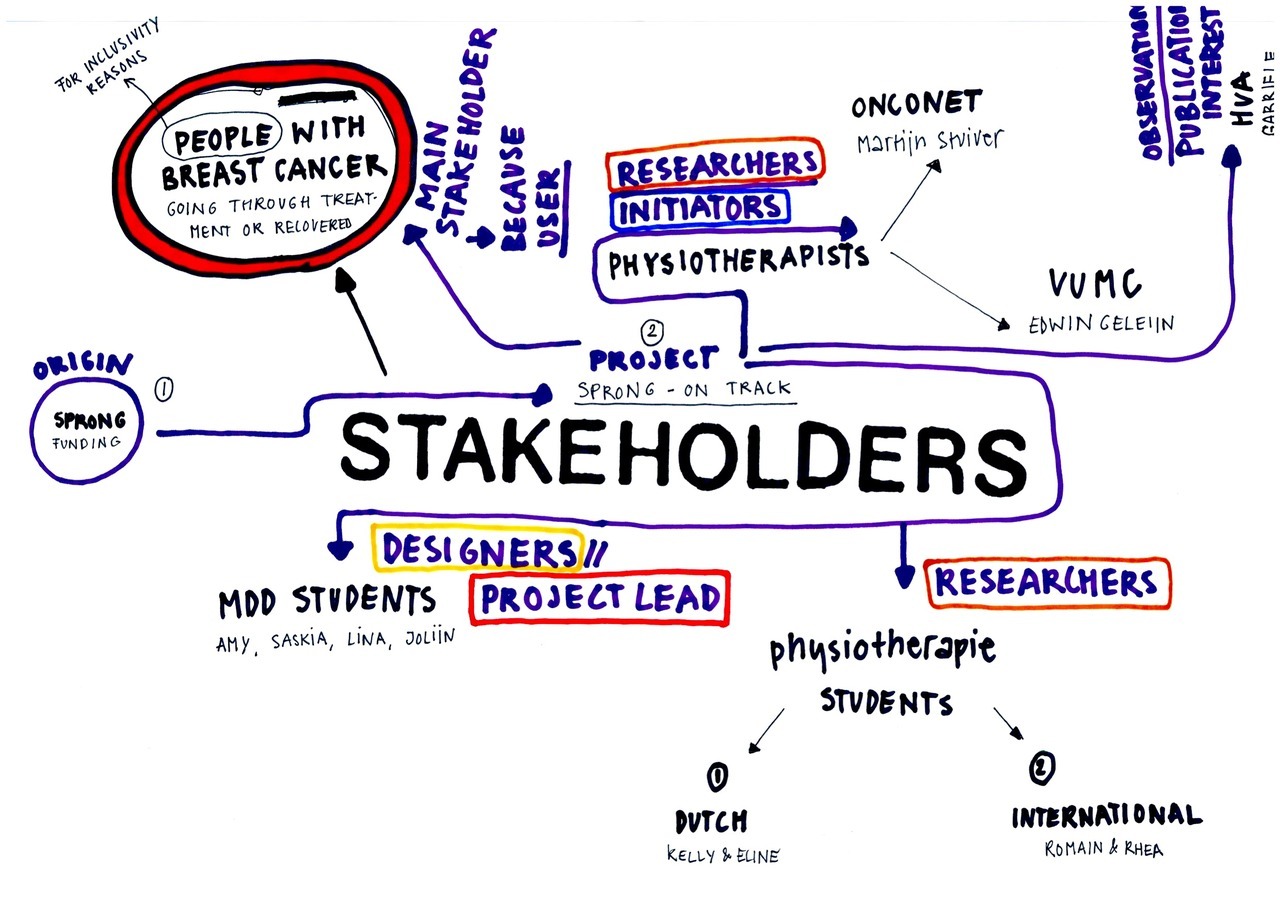 FOR INCLUSIVITY
REASONS
PEOPLE WITH
BREAST CANCER
GOING THROUGH TREAT-
MENT OR RECOVERED
MAIN
STAKEHOLDER
BECAUSE
USER
RESEARCHERS
INITIATORS
PHYSIOTHERAPISTS
ONCONET
Martijn Stuiver
VUMC
EDWIN GELEIJN
OBSERVATION
PUBLICATION
INTEREST
HVA
ORIGIN
1
SPRONG
FUNDING
2
PROJECT
SPRONG - ON TRACK
STAKEHOLDERS
DESIGNERS //
PROJECT LEAD
MDD STUDENTS
AMY, SASKIA, LINA, JOLIJN
RESEARCHERS
physiotherapie
STUDENTS
1
DUTCH
KELLY & ELINE
2
INTERNATIONAL
ROMAIN & RHEA